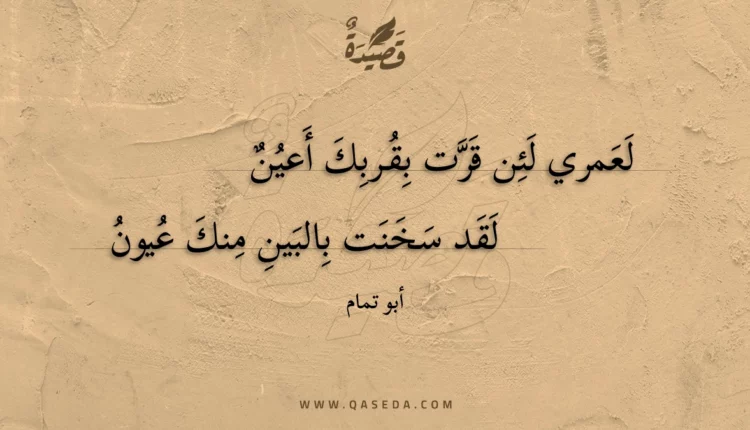 قَصِيدَةٌ
لَعَمري لَئِن قَرَّت بِقُربِكَ أَعيُنٌ
لَقَد سَخَنَت بِالبَينِ مِنكَ عُيونُ
أبو تمام
WWW.QASEDA.COM